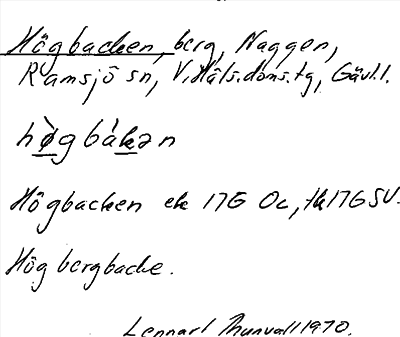 Högbacken, berg, Naggen,
Ramsjö sn, V. Häls. doms. tg, Gävl. l.
hø̀gbákən
Högbacken ek 17G Oc, tk 17G SV.
Högbergbacke.
Lennart Thunvall 1970.